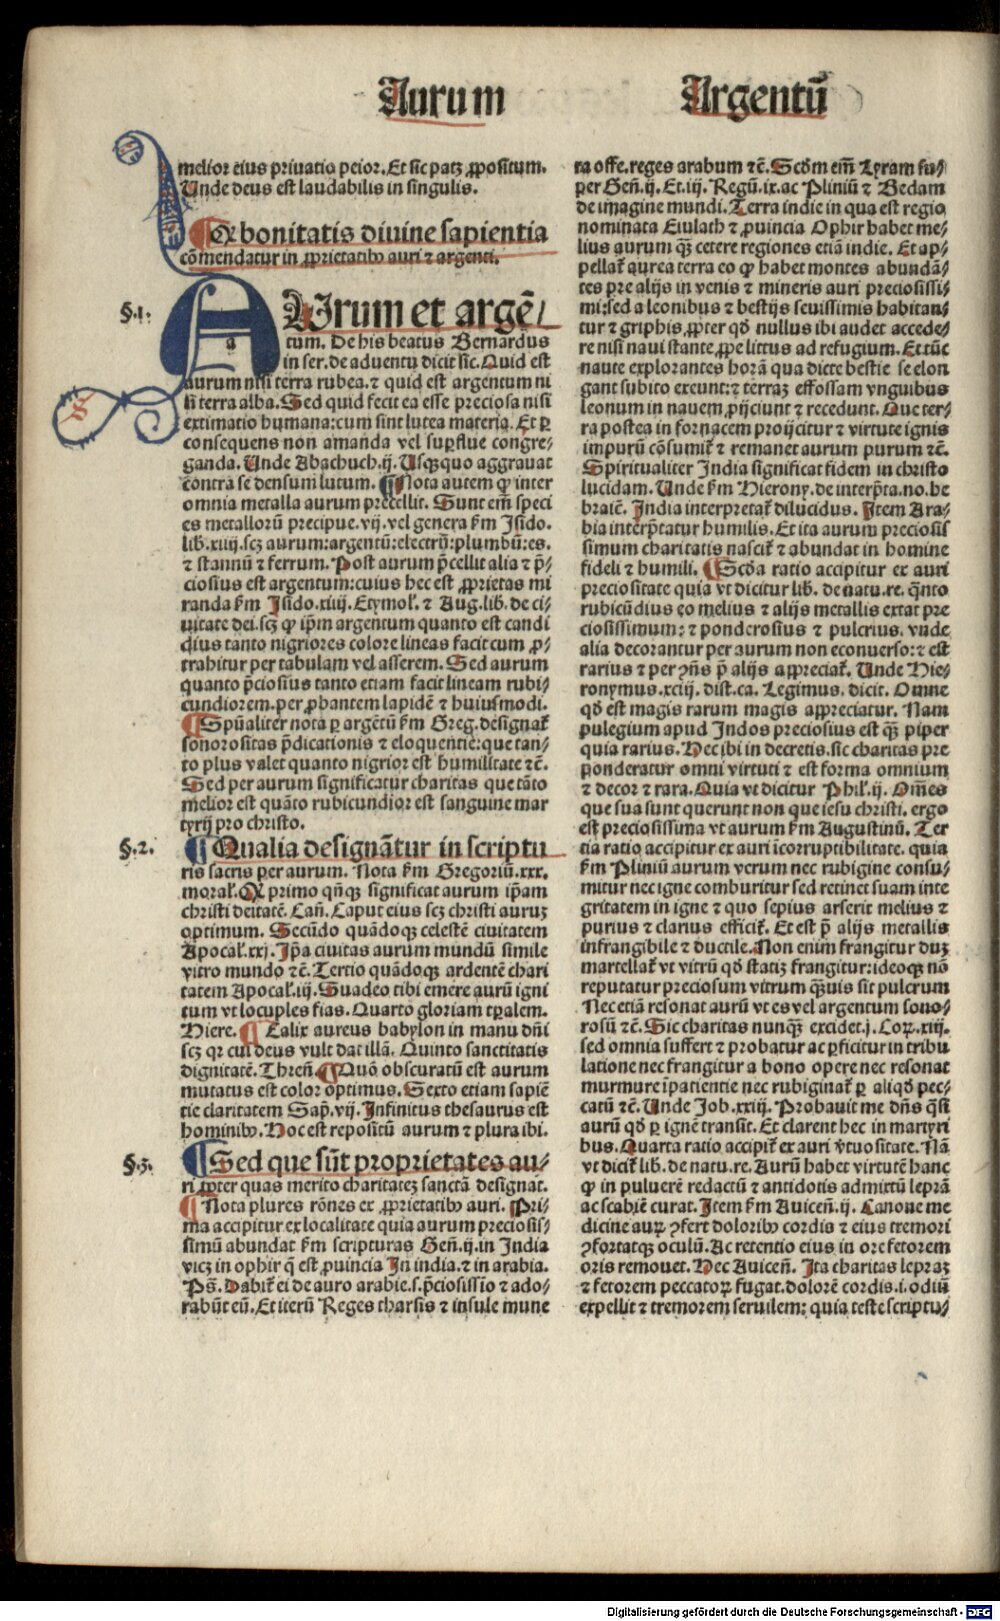 Aurum Argentū
melior eius priuatio peior. Et sic patꝫ ꝓpositum.
Unde deus est laudabilis in singulis.
¶ Qꝫ bonitatis diuine sapientia
cōmendatur in ꝓprietatibꝰ auri ⁊ argenti.
§.1.
AUrum et argē/
a
tum. De his beatus Bernardus
in ser. de aduentu dicit sic. Quid est
aurum nisi terra rubea. ⁊ quid est argentum ni
si terra alba. Sed quid fecit ea esse preciosa nisi
extimatio humana: cum sint lutea materia. Et ꝑ
consequens non amanda vel suꝑflue congre/
ganda. Unde Abachuch.ij. Usqꝫquo aggrauat
contra se densum lutum. ¶ Nota autem ꝙ inter
omnia metalla aurum precellit. Sunt em̄ speci
es metallorū precipue.vij. vel genera ẜm Isido.
lib.xiiij. scꝫ aurum: argentū: electrū: plumbū: es.
⁊ stannū ⁊ ferrum. Post aurum p̄cellit alia ⁊ p̄/
ciosius est argentum: cuius hec est ꝓprietas mi
randa ẜm Isido.xiiij. Etymoł. ⁊ Aug. lib. de ci/
uitate dei. scꝫ ꝙ ip̄m argentum quanto est candi
dius tanto nigriores colore lineas facit cum ꝓ/
trahitur per tabulam vel asserem. Sed aurum
quanto p̄ciosius tanto etiam facit lineam rubi/
cundiorem. per ꝓbantem lapidē ⁊ huiusmodi.
¶ Spūaliter nota ꝑ argētū ẜm Greg. designat̄
sonorositas p̄dicationis ⁊ eloquentie: que tan/
to plus valet quanto nigrior est humilitate ⁊c̄.
Sed per aurum significatur charitas que tāto
melior est quāto rubicundior est sanguine mar
tyrij pro christo.
§.2.
¶ Qualia designātur in scriptu
ris sacris per aurum. Nota ẜm Gregoriū.xxx.
morał. Qꝫ primo qn̄qꝫ significat aurum ip̄am
christi deitatē. Can̄. Caput eius scꝫ christi auruꝫ
optimum. Secūdo quādoqꝫ celestē ciuitatem
Apocał.xxj. Ip̄a ciuitas aurum mundū simile
vitro mundo ⁊c̄. Tertio quādoqꝫ ardentē chari
tatem Apocał.iij. Suadeo tibi emere aurū igni
tum vt locuples fias. Quarto gloriam tꝑalem.
Hiere. ¶ Calix aureus babylon in manu dn̄i
scꝫ qꝛ cui deus vult dat illā. Quinto sanctitatis
dignitatē. Thren̄. ¶ Quō obscuratū est aurum
mutatus est color optimus. Sexto etiam sapiē
tie claritatem Sap̄.vij. Infinitus thesaurus est
hominibꝰ. Hoc est repositū aurum ⁊ plura ibi.
§.3.
¶ Sed que sūt proprietates au/
ri ꝓpter quas merito charitateꝫ sanctā designat.
¶ Nota plures rōnes ex ꝓprietatibꝰ auri. Pri/
ma accipitur ex localitate quia aurum preciosis/
simū abundat ẜm scripturas Gen̄.ij. in India
vicꝫ in ophir q̄ est ꝓuincia In india. ⁊ in arabia.
Ps̄. Dabit̄ ei de auro arabie. s. p̄ciosissīo ⁊ ado/
rabūt eū. Et iterū Reges tharsis ⁊ insule mune
ra offe. reges arabum ⁊c̄. Scd̄m em̄ Lyram su/
per Gen̄.ij. Et.iij. Regū.ix. ac Pliniū ⁊ Bedam
de imagine mundi. Terra indie in qua est regio
nominata Euilath ⁊ ꝓuincia Ophir habet me/
lius aurum qꝫ̄ cetere regiones etiā indie. Et ap/
pellat̄ aurea terra eo ꝙ habet montes abundā/
tes pre alijs in venis ⁊ mineris auri preciosissi/
mi: sed a leonibus ⁊ bestijs seuissimis habitan/
tur ⁊ griphis, ꝓpter qd̄ nullus ibi audet accede/
re nisi naui stante ꝓpe littus ad refugium. Et tūc
naute explorantes horā qua dicte bestie se elon
gant subito exeunt: ⁊ terraꝫ effossam vnguibus
leonum in nauem ꝓijciunt ⁊ recedunt. Que ter/
ra postea in fornacem proijcitur ⁊ virtute ignis
impurū cōsumit̄ ⁊ remanet aurum purum ⁊c̄.
Spiritualiter India significat fidem in christo
lucidam. Unde ẜm Hierony. de interp̄ta. no. he
braic̄. India interpretat̄ dilucidus. Item Ara/
bia interp̄tatur humilis. Et ita aurum preciosis
simum charitatis nascit̄ ⁊ abundat in homine
fideli ⁊ humili. ¶ Scd̄a ratio accipitur ex auri
preciositate quia vt dicitur lib. de natu. re. qn̄to
rubicūdius eo melius ⁊ alijs metallis extat pre
ciosissimum: ⁊ ponderosius ⁊ pulcrius. vnde
alia decorantur per aurum non econuerso: ⁊ est
rarius ⁊ per ꝯn̄s p̄ alijs appreciat̄. Unde Hie/
ronymus.xciij. dist. ca. Legimus. dicit. Omne
qd̄ est magis rarum magis appreciatur. Nam
pulegium apud Indos preciosius est qꝫ̄ piper
quia rarius. Hec ibi in decretis. sic charitas pre
ponderatur omni virtuti ⁊ est forma omnium
⁊ decor ⁊ rara. Quia vt dicitur Phił.ij. Om̄es
que sua sunt querunt non que iesu christi. ergo
est preciosissima vt aurum ẜm Augustinū. Ter
tia ratio accipitur ex auri īcorruptibilitate. quia
ẜm Pliniū aurum verum nec rubigine consu/
mitur nec igne comburitur sed retinet suam inte
gritatem in igne ⁊ quo sepius arserit melius ⁊
purius ⁊ clarius efficit̄. Et est p̄ alijs metallis
infrangibile ⁊ ductile. Non enim frangitur duꝫ
martellat̄ vt vitrū qd̄ statiꝫ frangitur: ideoqꝫ nō
reputatur preciosum vitrum qꝫ̄uis sit pulcrum
Nec etiā resonat aurū vt es vel argentum sono/
rosū ⁊c̄. Sic charitas nunqꝫ̄ excidet.j. Coꝝ.xiij.
sed omnia suffert ⁊ probatur ac ꝑficitur in tribu
latione nec frangitur a bono opere nec resonat
murmure īpatientie nec rubiginat̄ ꝑ aliqd̄ pec/
catū ⁊c̄. Unde Job.xxiij. Probauit me dn̄s q̄si
aurū qd̄ ꝑ ignē transit. Et clarent hec in martyri
bus. Quarta ratio accipit̄ ex auri v̄tuositate. Nā
vt dicit̄ lib. de natu. re. Aurū habet virtutē hanc
ꝙ in puluerē redactū ⁊ antidotis admixtū leprā
ac scabiē curat. Item ẜm Auicen̄.ij. Canone me
dicine auꝝ ꝯfert doloribꝰ cordis ⁊ eius tremori
ꝯfortatqꝫ oculū. Ac retentio eius in ore fetorem
oris remouet. Hec Auicen̄. Ita charitas lepraꝫ
⁊ fetorem peccatoꝝ fugat. dolorē cordis .i. odiū
expellit ⁊ tremorem seruilem: quia teste scriptu/
Digitalisierung gefördert durch die Deutsche Forschungsgemeinschaft - DFG